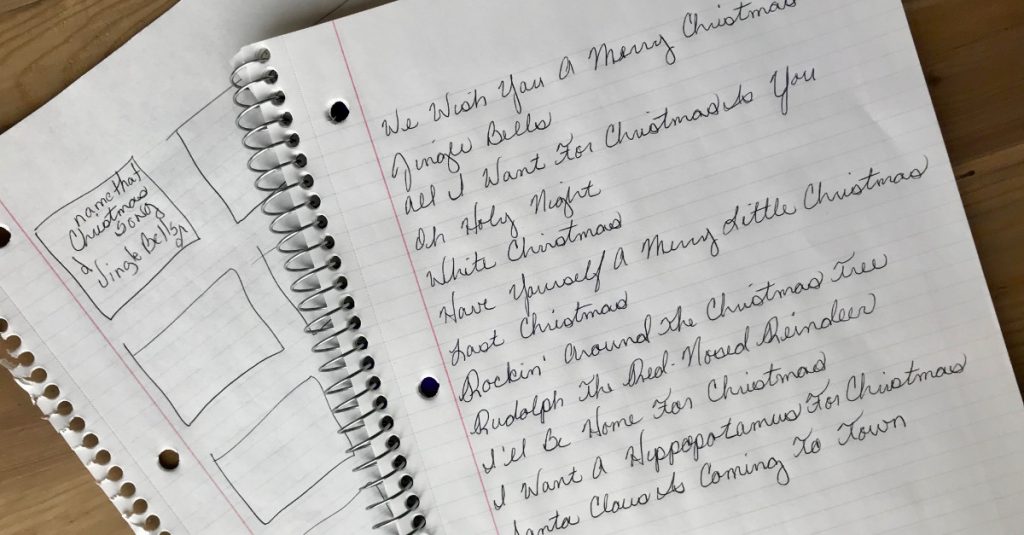 name that
Christmas
Song
Jingle Bells
We Wish You A Merry Christmas
Jingle Bells
All I Want For Christmas Is You
Oh Holy Night
White Christmas
Have Yourself A Merry Little Christmas
Last Christmas
Rockin' Around The Christmas Tree
Rudolph The Red-Nosed Reindeer
I'll Be Home For Christmas
I Want A Hippopotamus For Christmas
Santa Claus Is Coming To Town